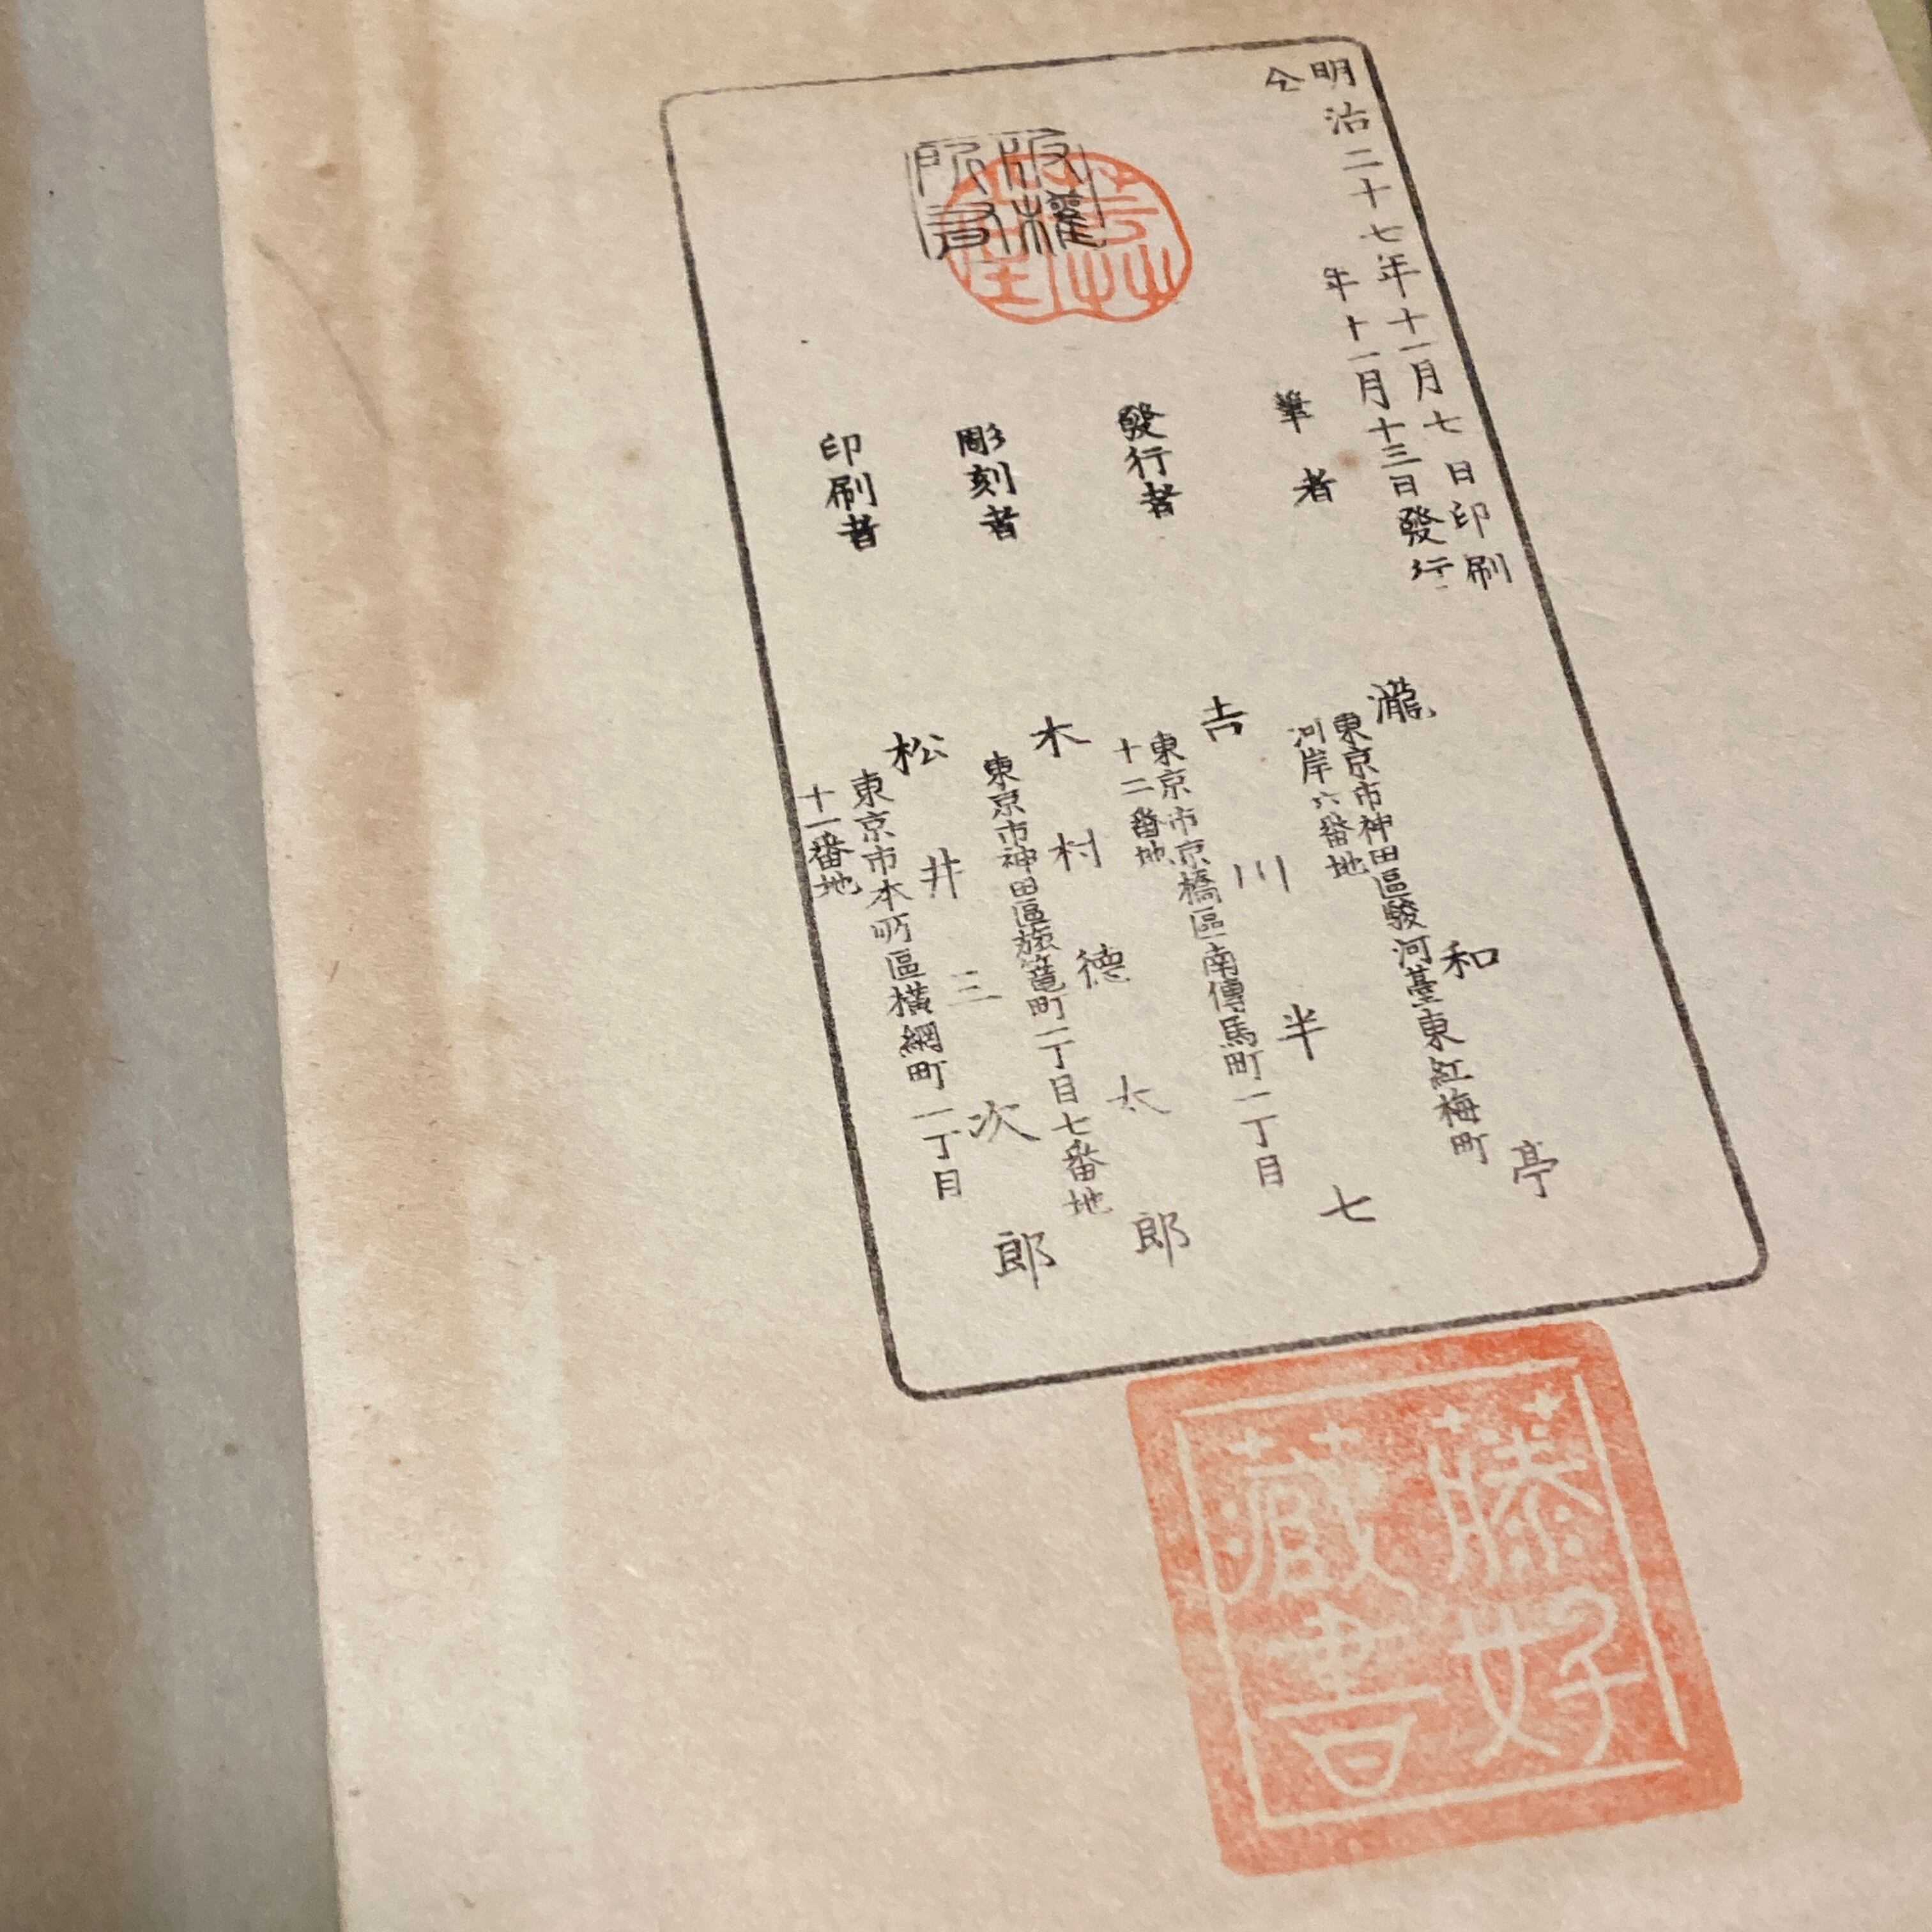 明治二十七年十一月七日印刷
仝年十一月十三日發行
筆者
瀧和亭
東京市神田區駿河臺東紅梅町
河岸六番地
發行者
吉川半七
東京市京橋區南傳馬町一丁目
十二番地
彫刻者
木村德太郎
東京市神田區旅籠町一丁目七番地
印刷者
松井三次郎
東京市本所區橫網町一丁目
十一番地
版權
所有
藤好
蔵書